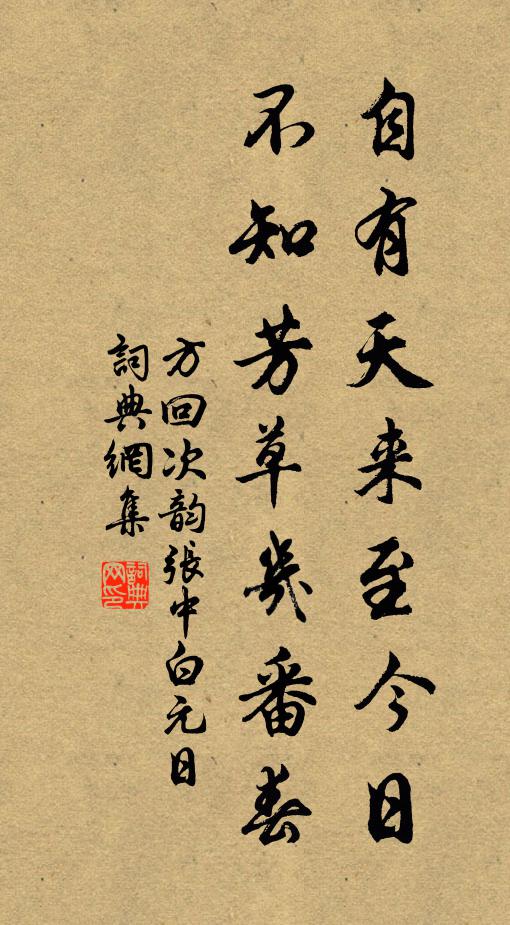 自有天来至今日
不知芳草幾番春
方回次韵張中白元日
詞典網集
詞典网印